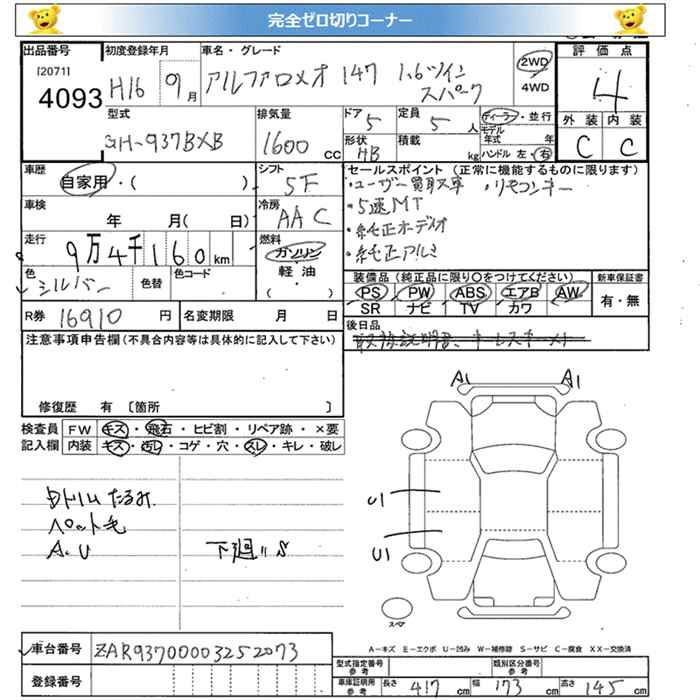 完全ゼロ切りコーナー
出品番号 初度登録年月 車名・グレード 評価点
[2071]
4093 H16 9月 アルファロメオ 147 1.6ツイン 2WD 4
スパーク 4WD
型式 排気量 ドア 定員 ディーラー・並行 外装 内装
GH-937BXB 1600 CC 5 5 人 モデル年式 年 C C
形状 積載
HB kg ハンドル 左・右
車歴 シフト セールスポイント (正常に機能するものに限ります)
自家用・( ) 5F ・ユーザー買取車 ・リモコンキー
車検 冷房 ・5速MT
年 月( 日) AAC ・純正オーディオ
走行 燃料 ・純正アルミ
9万4千160km ガソリン
色 色替 色コード 軽・油 装備品 (純正品に限り○をつけてください) 新車保証書
シルバー ・( ) PS PW ABS エアB AW 有・無
SR ナビ TV カワ
R券 16910 円 名変期限 月 日 後日品
注意事項申告欄(不具合内容等は具体的に記入して下さい) 取扱説明書、キーレスキーメモ
修復歴 有 〔箇所 〕
A1 A1
検査員 FW キズ・飛石・ヒビ割・リペア跡・×要
記入欄 内装 キズ・汚れ・コゲ・穴・スレ・キレ・破レ
ドトリムたるみ U1
ペット毛
A.U 下廻りS U1
スペア
A-キズ E-エクボ U-凹み W-補修跡 S-サビ C-腐食 XX-交換済
車台番号 ZAR93700003252073
型式指定番号 参考 類別区分番号 参考
登録番号 車庫証明用 参考 長さ 417cm 幅 173cm 高さ 145cm